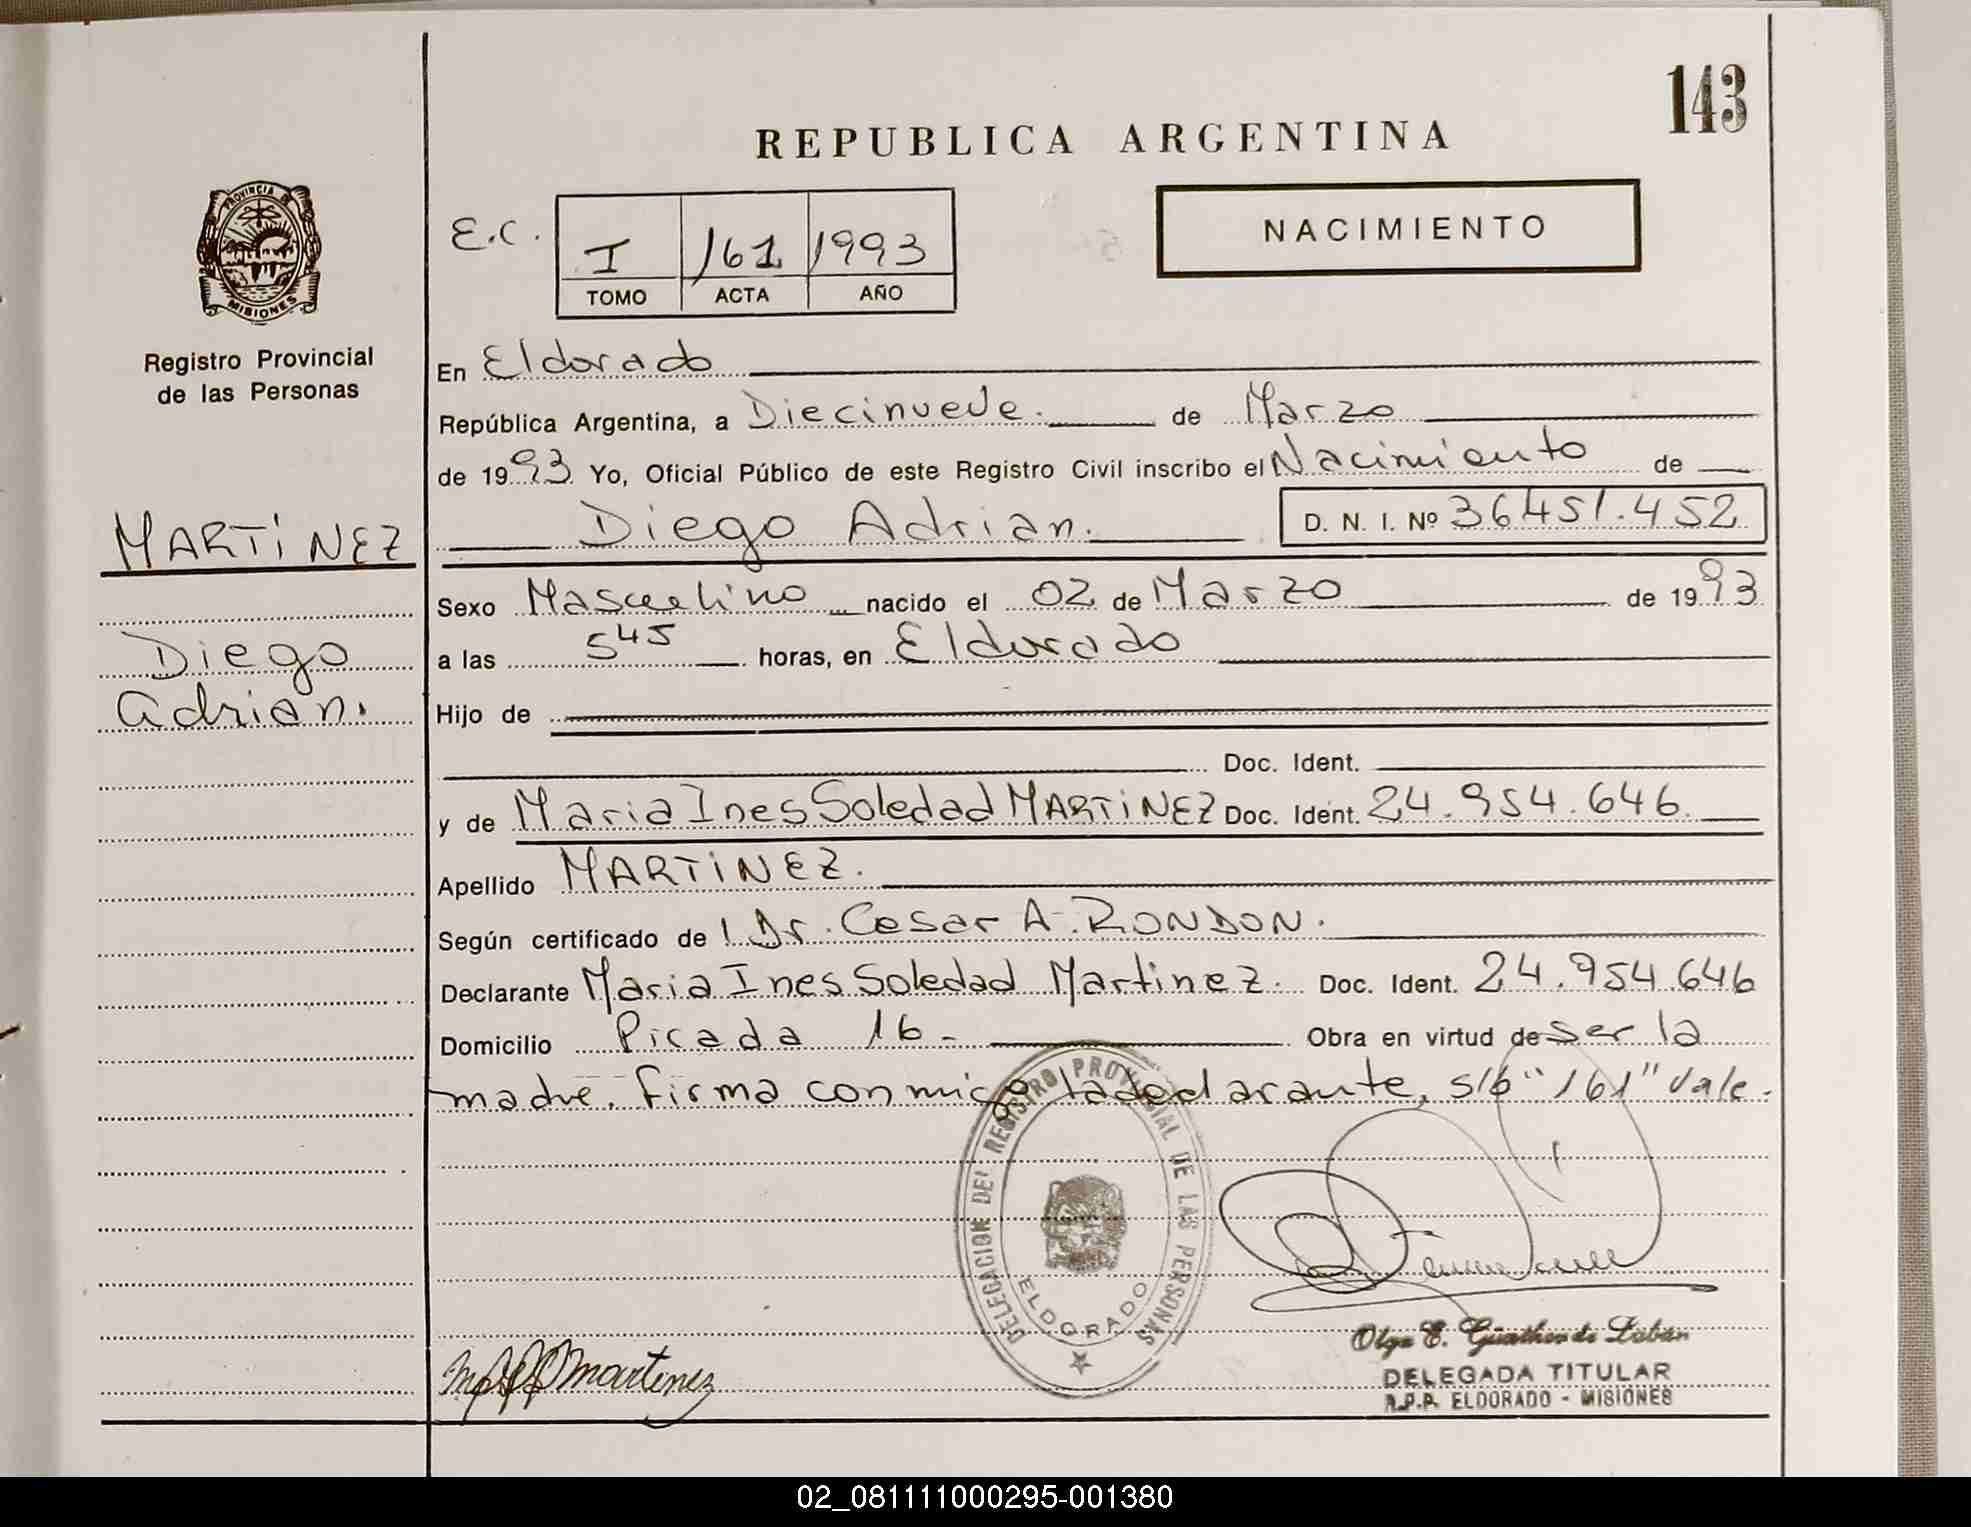 143
REPUBLICA ARGENTINA
PROVINCIA DE
MISIONES
Registro Provincial
de las Personas
E.C.
I 161 1993
TOMO ACTA AÑO
NACIMIENTO
En Eldorado
República Argentina, a Diecinueve. de Marzo
de 1993 Yo, Oficial Público de este Registro Civil inscribo el Nacimiento de
MARTiNEZ
Diego Adrian. D. N. I. Nº 36451.452
Sexo Masculino nacido el 02 de Marzo de 1993
Diego
a las 5 45 horas, en Eldorado
Adrian.
Hijo de
Doc. Ident.
y de Maria Ines Soledad MARTiNEZ Doc. Ident. 24.954.646
Apellido MARTiNEZ.
Según certificado de Dr. Cesar A. RONDON.
Declarante Maria Ines Soledad Martinez. Doc. Ident. 24.954.646
Domicilio Picada 16- Obra en virtud de Ser la
madre. firma conmigo la declarante, s/b "161" Vale.
DELEGACION DEL REGISTRO PROVINCIAL DE LAS PERSONAS
ELDORADO
Martinez
Olga E. Günther de Laban
DELEGADA TITULAR
R.P.P. ELDORADO - MISIONES
02_081111000295-001380